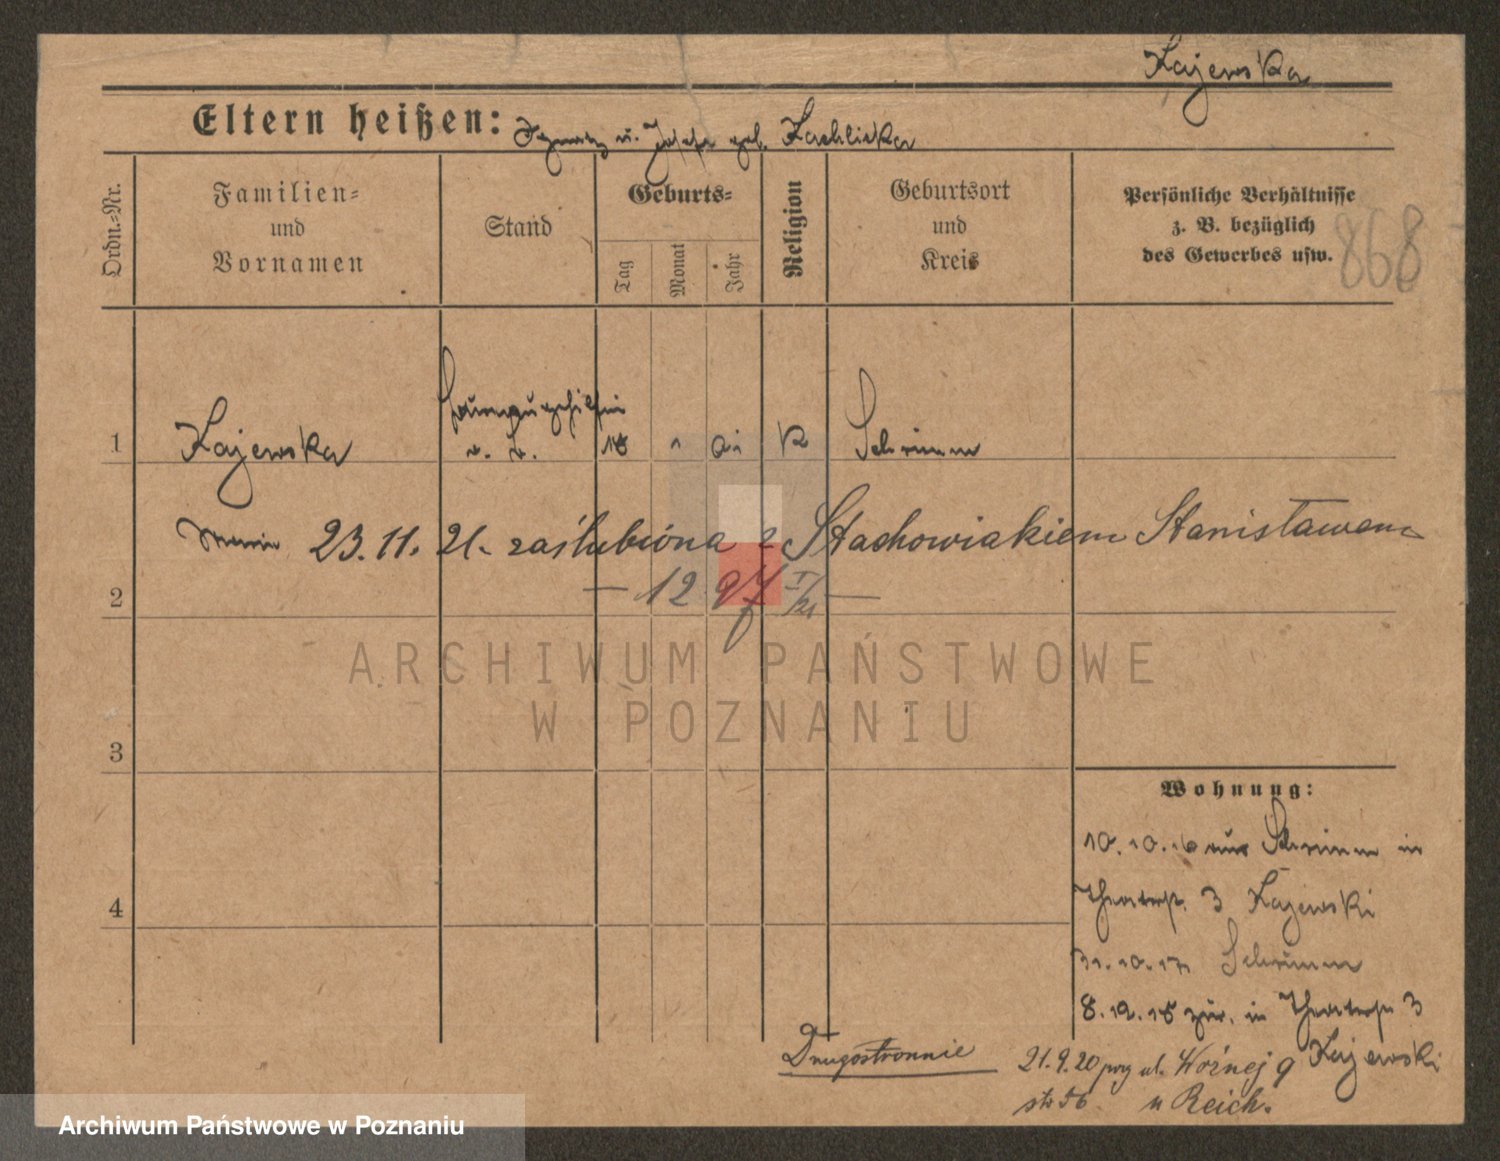 Kajewska
Eltern heißen: Ignatz u. Josefa geb. Kachlicka
Ordn.=Nr.
Familien=
und
Vornamen
Stand
Geburts=
Tag
Monat
Jahr
Religion
Geburtsort
und
Kreis
Persönliche Verhältnisse
z. B. bezüglich
des Gewerbes usw.
868
1
Kajewska
18
K
Schrimm
23.11.21. zaślubiona z Stachowiakiem Stanisławem
2
— 12 97
ARCHIWUM PAŃSTWOWE
W POZNANIU
3
Wohnung:
10.10.16 aus Schrimm in
Theaterstr. 3 Kajewski
4
31.10.17 Schrimm
8.12.18 zur. in Theaterstr 3
Kajewski
Drugostronnie
21.9.20 przy ul. Woźnej 9
u Reich.
Archiwum Państwowe w Poznaniu